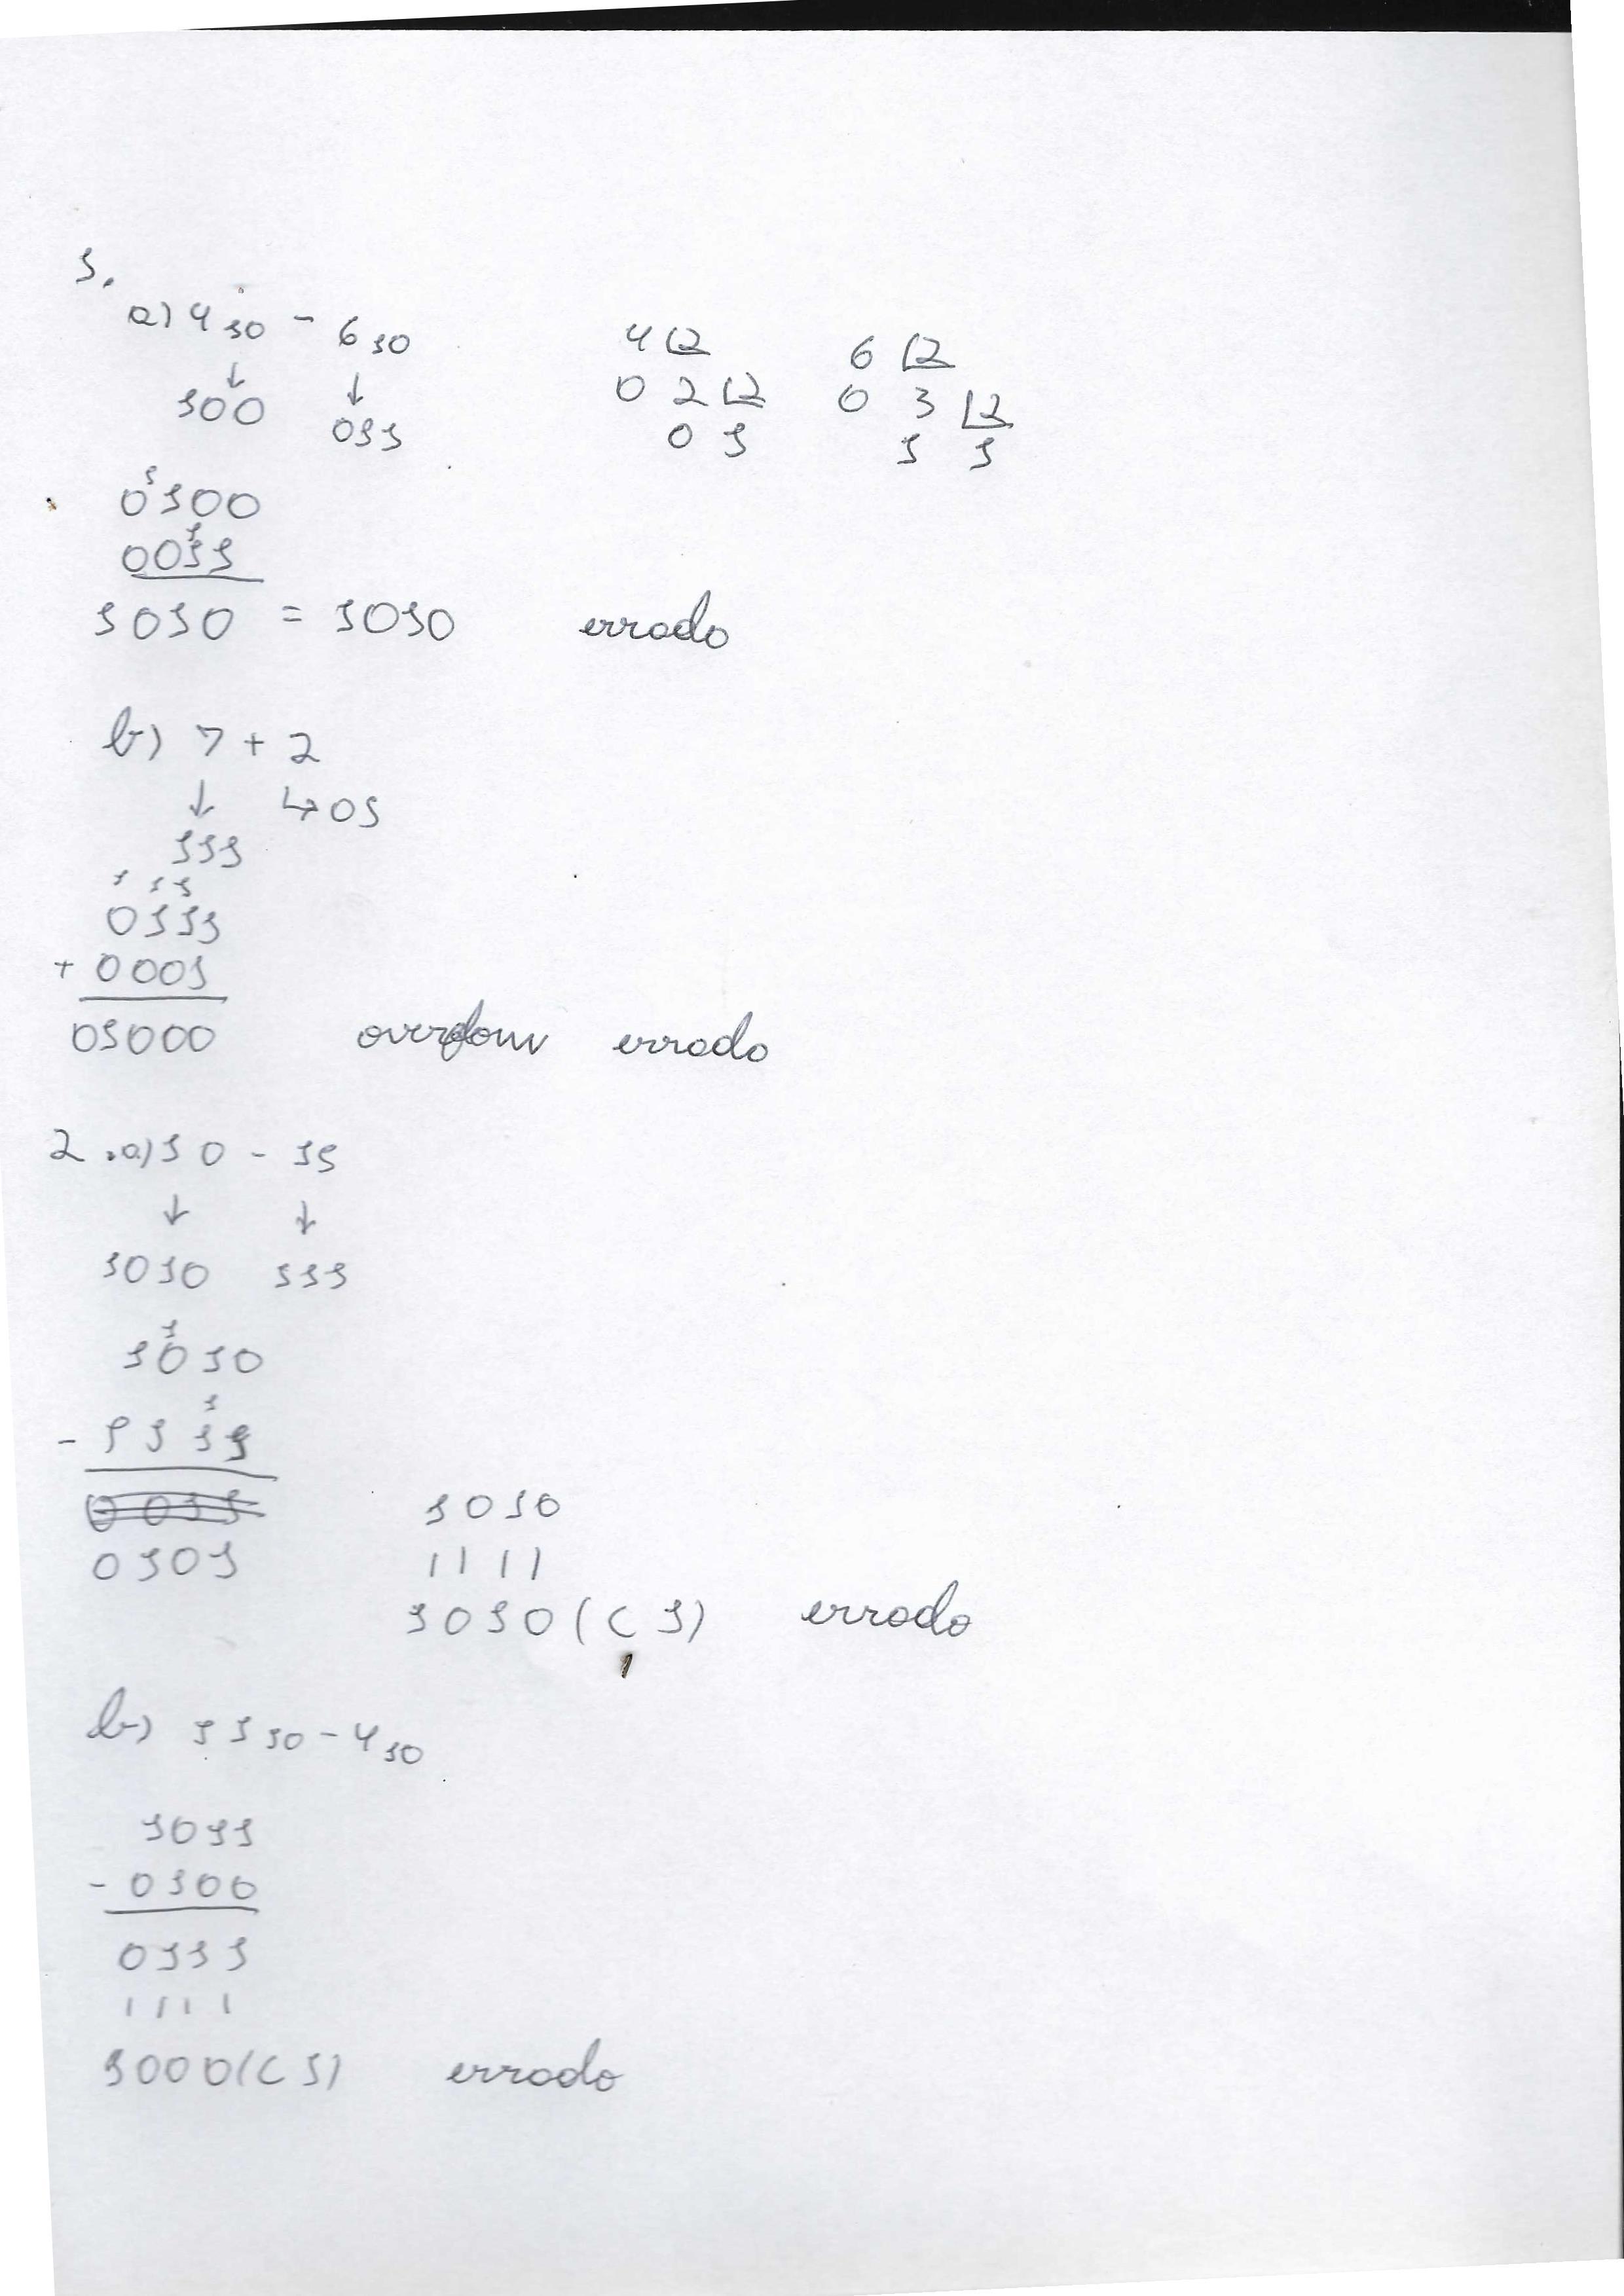 1.
a) 4 10 - 6 10
↓ ↓
100 011
4 |2 6 |2
0 2 |2 0 3 |2
0 1 1 1
1
0100
1
0011
1010 = 1010 errado
b) 7 + 2
↓ ↳ 01
111
1 1 1
0111
+ 0001
01000 overflow errado
2. a) 10 - 15
↓ ↓
1010 111
1
1010
1
- 1111
0101
1010
1111
1010 (C1) errado
b) 11 10 - 4 10
1011
- 0100
0111
1111
1000 (C1) errado